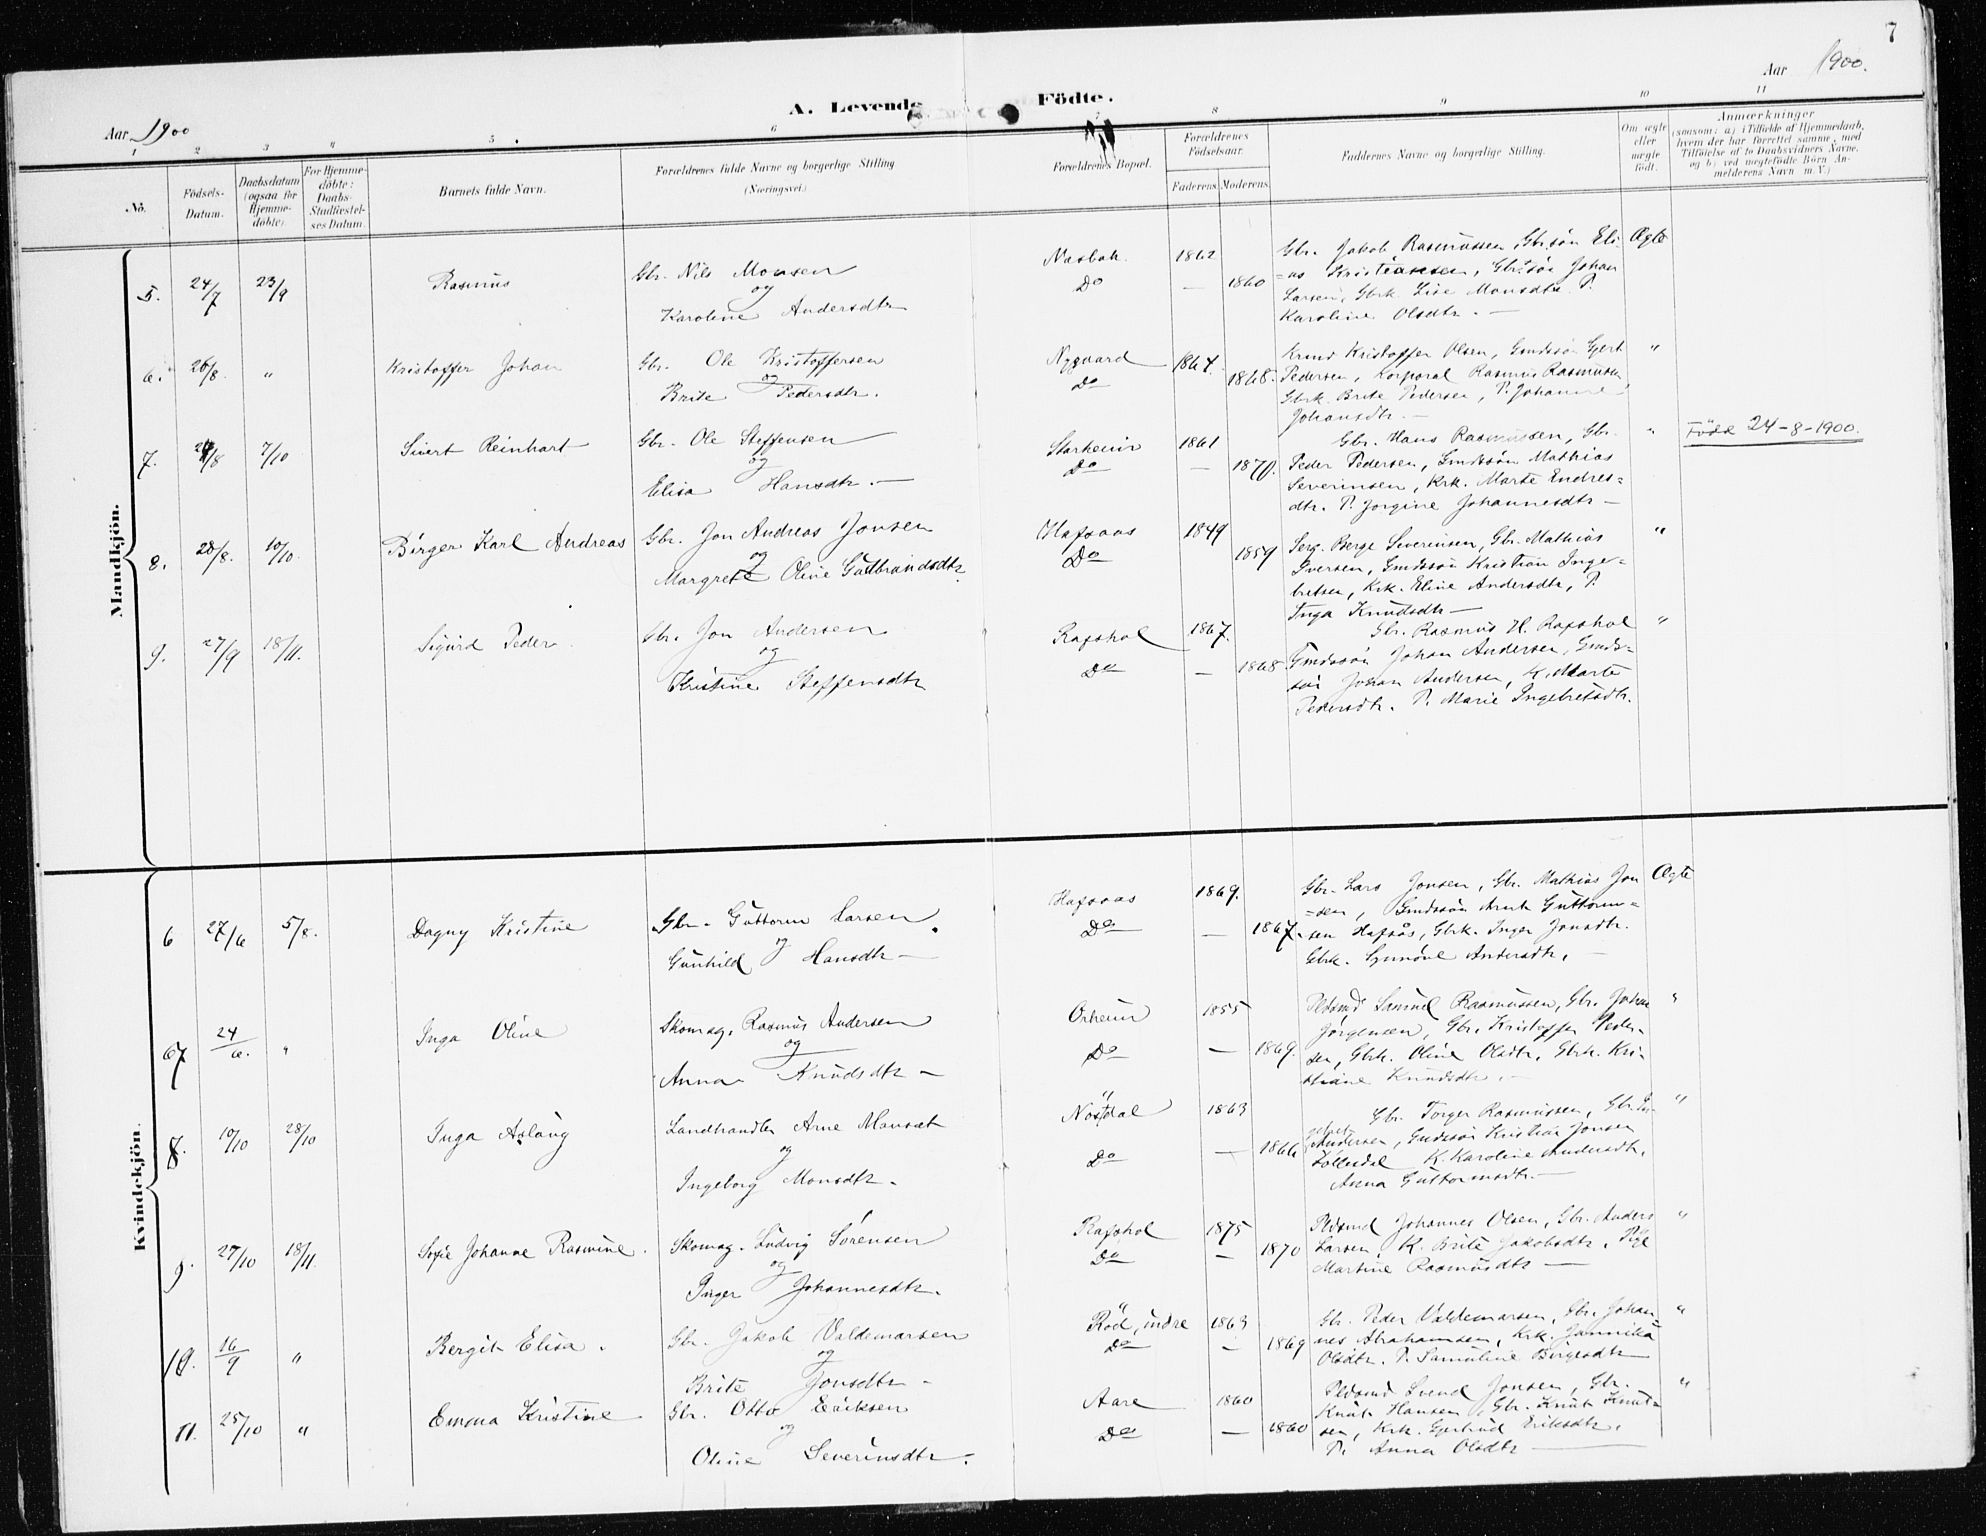 7
Aar 1900.
A. Levende Födte.
Aar 1900
1 2 3 4 5 6 7 8 9 10 11
Nö.
Födsels-Datum.
Daabsdatum (ogsaa for Hjemmedöbte)
For Hjemmedöbte: Daabs-Stadfæstelses Datum.
Barnets fulde Navn.
Forældrenes fulde Navne og borgerlige Stilling (Næringsvei.)
Forældrenes Bopæl.
Forældrenes Födselsaar.
Faderens. Moderens.
Faddernes Navne og borgerlige Stilling.
Om ægte eller uægte födt.
Anmærkninger
(saasom: a) i Tilfælde af Hjemmedaab, hvem der har forrettet samme, med Tilföielse af to Daabsvidners Navne, og b) ved uegtefödte Börn Anmelderens Navn m. V.)
Mandkjön.
5. 24/7 23/9 Rasmus
Gbr. Nils Monsen
og
Karoline Andersdtr
Næsbak. Do
1862 — 1860
Gbr. Jakob Rasmussen, Gbrsön Eli-
=as Kristiansen, Gbrsön Johan
Larsen, Gbrk. Lise Monsdtr. P.
Karoline Olsdtr. —
Ægte
6. 26/8. " Kristoffer Johan
Gbr. Ole Kristoffersen
og
Brite Pedersdtr.
Nygaard Do
1864. 1868.
Krmd Kristoffer Olsen, Gmdssön Gjert
Pedersen, Korporal Rasmus Rasmussen
Gbrk. Brite Pedersen, P. Johanne
Johansdtr. —
"
7. 24/8 7/10 Sivert Reinhart
Gbr. Ole Steffensen
og
Elisa Hansdtr. —
Starheim Do
1861 — 1870.
Gbr. Hans Rasmussen, Gbr.
Peder Pedersen, Gmdssön Mathias
Severinsen, Krk. Marte Endres=
dtr. P. Jorgine Johannesdtr —
"
Född 24-8-1900.
8. 28/8. 10/10. Birger Karl Andreas
Gbr. Jon Andreas Jonsen
og
Margrete Oline Gudbrandsdtr.
Hafsaas Do
1849 1859
Serg. Berge Severinsen, Gbr. Mathias
Iversen, Gmdssön Kristian Inge-
bretsen, Krk. Eline Andersdtr, P.
Inga Knudsdtr —
"
9. 27/9 18/11. Sigurd Peder
Gbr. Jon Andersen
og
Kristine Steffensdtr
Rafshol Do
1867. — 1868
Gbr. Rasmus H. Rafshol
Gmdssön Johan Andersen, Gmds-
sön Johan Andersen, K. Marte
Pedersdtr. P. Marie Ingebretsdtr.
"
Kvindekjön.
6 27/6 5/8. Dagny Kristine
Gbr. Guttorm Larsen
og
Gunhild Hansdtr —
Hafsaas Do
1869. — 1867.
Gbr. Lars Jonsen, Gbr. Mathias Jon
=sen, Gmdssön Arnt Guttorm=
sen Hafsås, Gbrk. Inger Jonsdtr.
Gbrk. Synnöve Andersdtr. —
Ægte
7 24/6. " Inga Oline
Skomag. Rasmus Andersen
og
Anna Knudsdtr —
Orheim Do
1855 — 1869.
Pldsmd Samuel Rasmussen, Gbr. Johan
Jörgensen, Gbr. Kristoffer Peder-
sen, Gbrk. Oline Olsdtr, Gbrk. Kri-
stiane Knudsdtr. —
"
8. 10/10 28/10 Inga Aslaug
Landhandler Arne Monsæt
og
Ingeborg Monsdtr.
Nöstdal Do
1863 — 1866
Gbr. Torger Rasmussen, Gbr. In-
gebret Andersen, Gmdssön Kristian Jonsen
K. Karoline Andersdtr,
Anna Guttormsdtr. —
"
9. 27/10 18/11. Sofie Johanne Rasmine.
Skomag. Ludvig Sörensen
og
Inger Johannesdtr.
Rafshol Do
1875 — 1870
Pldsmd Johannes Olsen, Gbr. Anders
Larsen, K. Brite Jakobsdtr. Pige
Martine Rasmusdtr —
"
10. 16/9 " Bergit Elisa.
Gbr. Jakob Valdemarsen
og
Brite Jonsdtr —
Röd, indre Do
1863 — 1869
Gbr. Peder Valdemarsen, Gbr. Johan
nes Abrahamsen, Krk. Jannika
Olsdtr. P. Samuline Birgesdtr
"
11. 25/10 " Emma Kristine
Gbr. Otto Eriksen
og
Oline Severinsdtr.
Aare Do
1860 — 1860
Pldsmd Svend Jonsen, Gbr.
Knut Hansen, Gbr. Knut Knut-
sen, Krk. Gjertrud Eriksdtr.
P. Anna Olsdtr —
"